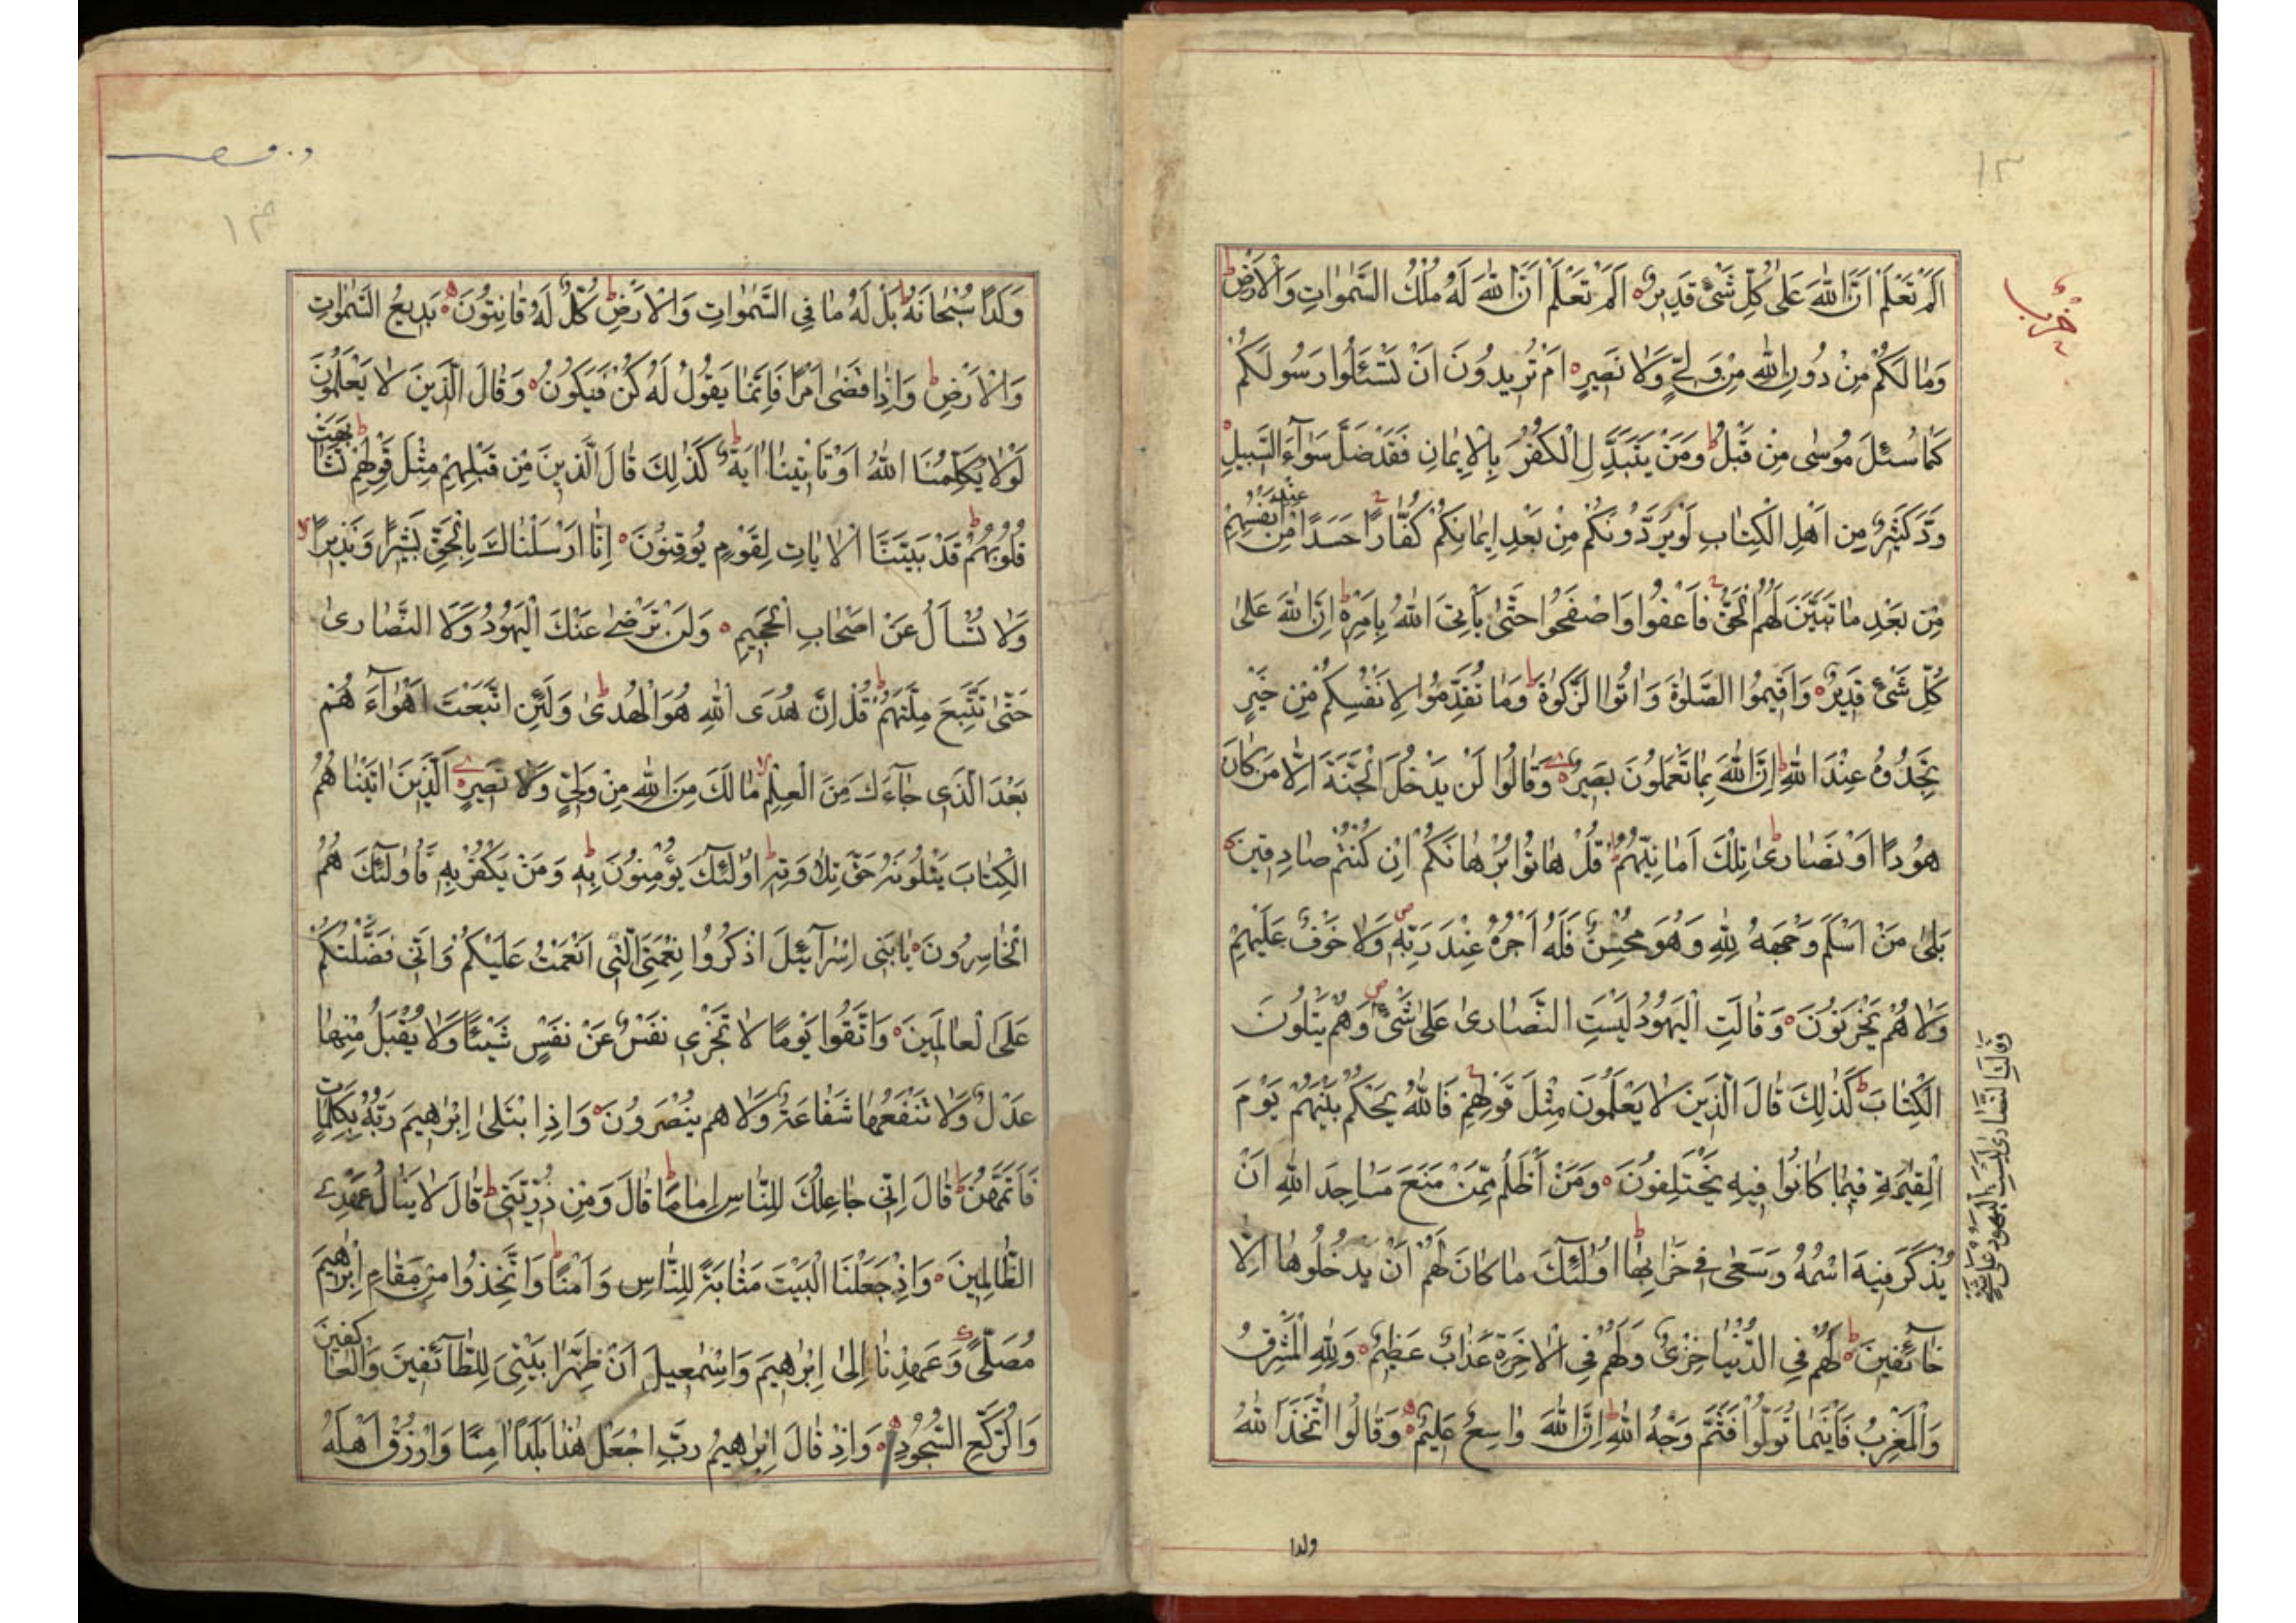 ١٣
حزب
اَلَمْ تَعْلَمْ اَنَّ اللّٰهَ عَلٰى كُلِّ شَیْءٍ قَدِيرٌ اَلَمْ تَعْلَمْ اَنَّ اللّٰهَ لَهُ مُلْكُ السَّمٰوَاتِ وَالْاَرْضِ ط
وَمٰا لَكُمْ مِنْ دُونِ اللّٰهِ مِنْ وَلِیٍّ وَلٰا نَصِيرٍ اَمْ تُرِيدُونَ اَنْ تَسْئَلُوا رَسُولَكُمْ
كَمٰا سُئِلَ مُوسٰى مِنْ قَبْلُ ط وَمَنْ يَتَبَدَّلِ الْكُفْرَ بِالْاِيمٰانِ فَقَدْ ضَلَّ سَوٰآءَ السَّبِيلِ
وَدَّ كَثِيرٌ مِنْ اَهْلِ الْكِتٰابِ لَوْ يَرُدُّونَكُمْ مِنْ بَعْدِ اِيمٰانِكُمْ كُفّٰارًا حَسَدًا مِنْ عِنْدِ اَنْفُسِهِمْ
مِنْ بَعْدِ مٰا تَبَيَّنَ لَهُمُ الْحَقُّ فَاعْفُوا وَاصْفَحُوا حَتّٰى يَأْتِیَ اللّٰهُ بِاَمْرِهِ ط اِنَّ اللّٰهَ عَلٰى
كُلِّ شَیْءٍ قَدِيرٌ وَاَقِيمُوا الصَّلٰوةَ وَاٰتُوا الزَّكٰوةَ ط وَمٰا تُقَدِّمُوا لِاَنْفُسِكُمْ مِنْ خَيْرٍ
تَجِدُوهُ عِنْدَ اللّٰهِ ط اِنَّ اللّٰهَ بِمٰا تَعْمَلُونَ بَصِيرٌ وَقٰالُوا لَنْ يَدْخُلَ الْجَنَّةَ اِلّٰا مَنْ كٰانَ
هُودًا اَوْ نَصٰارٰى ط تِلْكَ اَمٰانِيُّهُمْ ط قُلْ هٰاتُوا بُرْهٰانَكُمْ اِنْ كُنْتُمْ صٰادِقِينَ
بَلٰى مَنْ اَسْلَمَ وَجْهَهُ لِلّٰهِ وَهُوَ مُحْسِنٌ فَلَهُ اَجْرُهُ عِنْدَ رَبِّهِ ص وَلٰا خَوْفٌ عَلَيْهِمْ
وَلٰا هُمْ يَحْزَنُونَ وَقٰالَتِ الْيَهُودُ لَيْسَتِ النَّصٰارٰى عَلٰى شَیْءٍ ص وَهُمْ يَتْلُونَ
وَقٰالَتِ النَّصٰارٰى لَيْسَتِ الْيَهُودُ عَلٰى شَیْءٍ
الْكِتٰابَ ط كَذٰلِكَ قٰالَ الَّذِينَ لٰا يَعْلَمُونَ مِثْلَ قَوْلِهِمْ فَاللّٰهُ يَحْكُمُ بَيْنَهُمْ يَوْمَ
الْقِيٰمَةِ فِيمٰا كٰانُوا فِيهِ يَخْتَلِفُونَ وَمَنْ اَظْلَمُ مِمَّنْ مَنَعَ مَسٰاجِدَ اللّٰهِ اَنْ
يُذْكَرَ فِيهَا اسْمُهُ وَسَعٰى فِی خَرٰابِهٰا ط اُولٰٓئِكَ مٰا كٰانَ لَهُمْ اَنْ يَدْخُلُوهٰا اِلّٰا
خٰآئِفِينَ ط لَهُمْ فِی الدُّنْيٰا خِزْیٌ وَلَهُمْ فِی الْاٰخِرَةِ عَذٰابٌ عَظِيمٌ وَلِلّٰهِ الْمَشْرِقُ
وَالْمَغْرِبُ فَاَيْنَمٰا تُوَلُّوا فَثَمَّ وَجْهُ اللّٰهِ ط اِنَّ اللّٰهَ وٰاسِعٌ عَلِيمٌ وَقٰالُوا اتَّخَذَ اللّٰهُ
ولدا
وَلَدًا سُبْحٰانَهُ ط بَلْ لَهُ مٰا فِی السَّمٰوَاتِ وَالْاَرْضِ ط كُلٌّ لَهُ قٰانِتُونَ بَدِيعُ السَّمٰوَاتِ
وَالْاَرْضِ ط وَاِذٰا قَضٰى اَمْرًا فَاِنَّمٰا يَقُولُ لَهُ كُنْ فَيَكُونُ وَقٰالَ الَّذِينَ لٰا يَعْلَمُونَ
لَوْلٰا يُكَلِّمُنَا اللّٰهُ اَوْ تَأْتِينٰا اٰيَةٌ ط كَذٰلِكَ قٰالَ الَّذِينَ مِنْ قَبْلِهِمْ مِثْلَ قَوْلِهِمْ ط تَشٰابَهَتْ
قُلُوبُهُمْ ط قَدْ بَيَّنَّا الْاٰيٰاتِ لِقَوْمٍ يُوقِنُونَ اِنّٰا اَرْسَلْنٰاكَ بِالْحَقِّ بَشِيرًا وَنَذِيرًا لا
وَلٰا تُسْأَلُ عَنْ اَصْحٰابِ الْجَحِيمِ وَلَنْ تَرْضٰى عَنْكَ الْيَهُودُ وَلَا النَّصٰارٰى
حَتّٰى تَتَّبِعَ مِلَّتَهُمْ ط قُلْ اِنَّ هُدَى اللّٰهِ هُوَ الْهُدٰى ط وَلَئِنِ اتَّبَعْتَ اَهْوٰآءَهُمْ
بَعْدَ الَّذِی جٰآءَكَ مِنَ الْعِلْمِ لا مٰا لَكَ مِنَ اللّٰهِ مِنْ وَلِیٍّ وَلٰا نَصِيرٍ اَلَّذِينَ اٰتَيْنٰاهُمُ
الْكِتٰابَ يَتْلُونَهُ حَقَّ تِلٰاوَتِهِ ط اُولٰٓئِكَ يُؤْمِنُونَ بِهِ ط وَمَنْ يَكْفُرْ بِهِ فَاُولٰٓئِكَ هُمُ
الْخٰاسِرُونَ يٰا بَنِی اِسْرٰآئِيلَ اذْكُرُوا نِعْمَتِیَ الَّتِی اَنْعَمْتُ عَلَيْكُمْ وَاَنِّی فَضَّلْتُكُمْ
عَلَى الْعٰالَمِينَ وَاتَّقُوا يَوْمًا لٰا تَجْزِی نَفْسٌ عَنْ نَفْسٍ شَيْئًا وَلٰا يُقْبَلُ مِنْهٰا
عَدْلٌ وَلٰا تَنْفَعُهٰا شَفٰاعَةٌ وَلٰا هُمْ يُنْصَرُونَ وَاِذِ ابْتَلٰى اِبْرٰهِيمَ رَبُّهُ بِكَلِمٰاتٍ
فَاَتَمَّهُنَّ ط قٰالَ اِنِّی جٰاعِلُكَ لِلنّٰاسِ اِمٰامًا ط قٰالَ وَمِنْ ذُرِّيَّتِی ط قٰالَ لٰا يَنٰالُ عَهْدِی
الظّٰالِمِينَ وَاِذْ جَعَلْنَا الْبَيْتَ مَثٰابَةً لِلنّٰاسِ وَاَمْنًا ط وَاتَّخِذُوا مِنْ مَقٰامِ اِبْرٰهِيمَ
مُصَلًّى ط وَعَهِدْنٰا اِلٰى اِبْرٰهِيمَ وَاِسْمٰعِيلَ اَنْ طَهِّرٰا بَيْتِیَ لِلطّٰآئِفِينَ وَالْعٰاكِفِينَ
وَالرُّكَّعِ السُّجُودِ وَاِذْ قٰالَ اِبْرٰهِيمُ رَبِّ اجْعَلْ هٰذٰا بَلَدًا اٰمِنًا وَارْزُقْ اَهْلَهُ